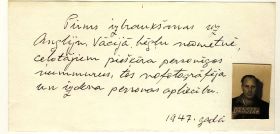 Pirms izbraukšanas uz
Angliju Vācijā bēgļu nometnē,
ceļotājiem piešķīra personīgos
nummurus, tos nofotografēja
un izdeva personas apliecību.
1947. gadā